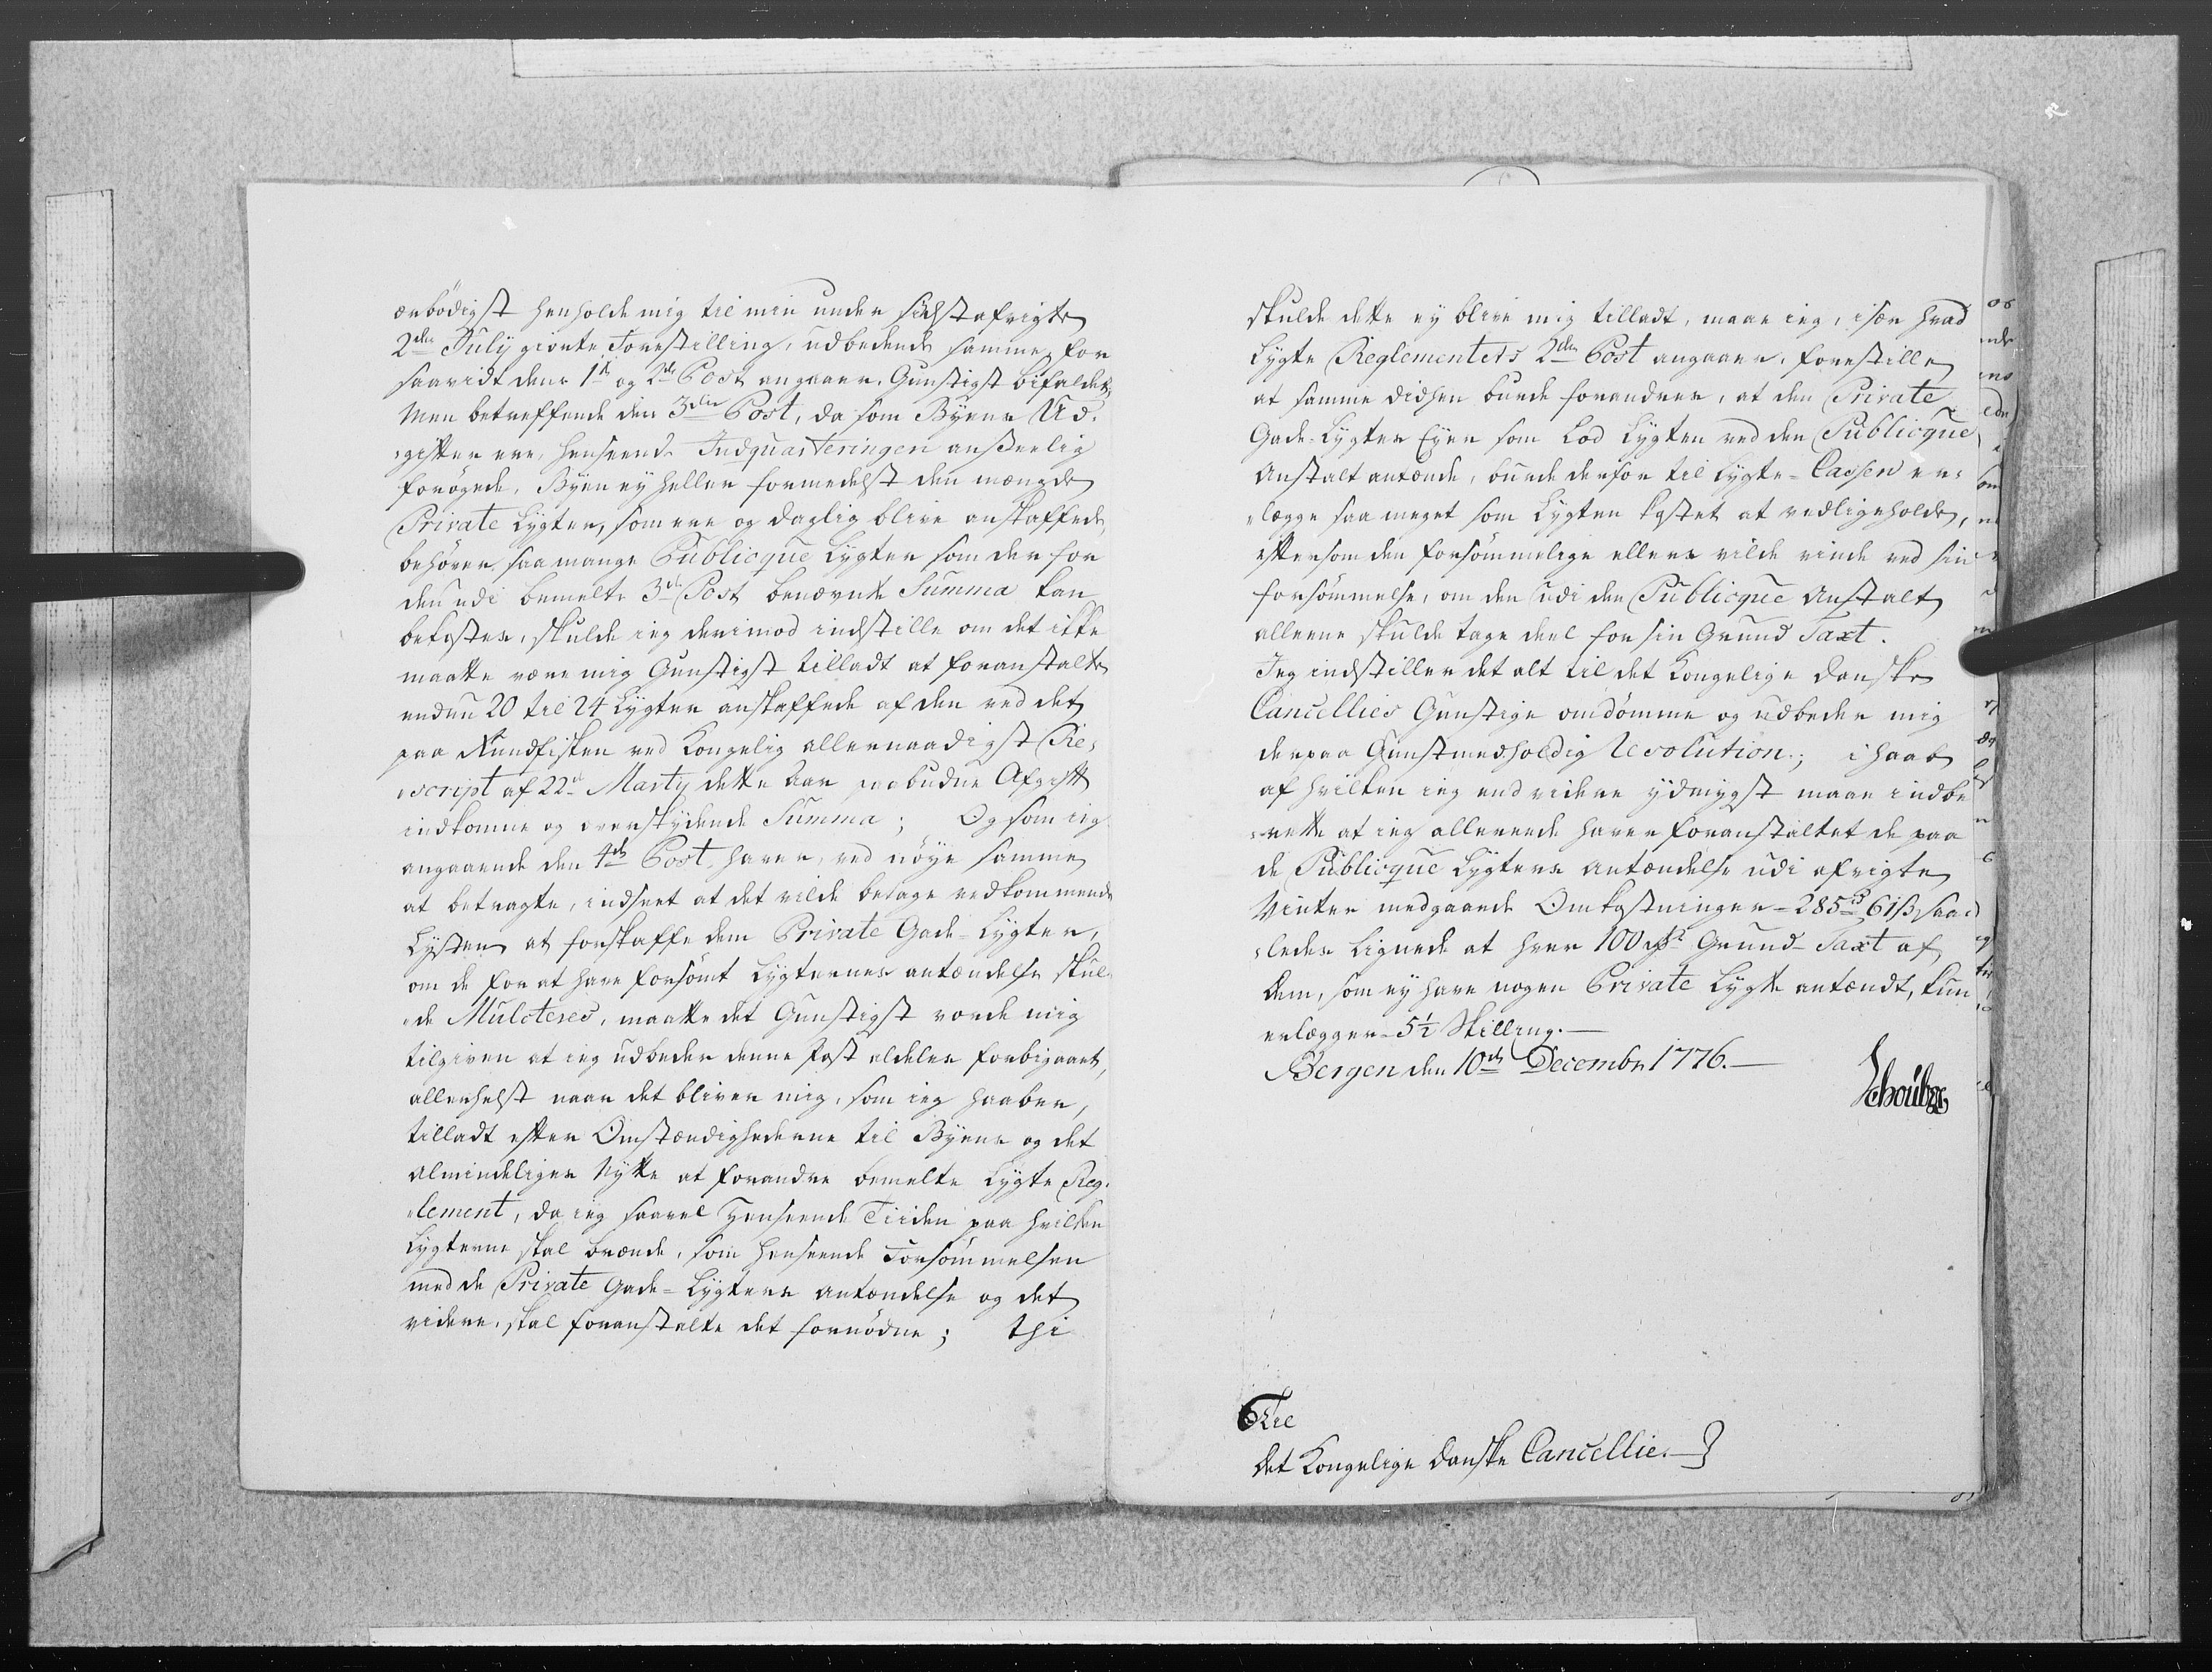 ærbödigst henholde mig til min under sidstafvigte
2den July giorte Forestilling, udbedende samme, for
saavidt dens 1te og 2de Post angaaer, Gunstigst bifaldet,
Men betreffende den 3die Post, da som Byens Ud-
gifter ere, henseende Indquarteringen anseelig
forögede, Byen ey heller formedelst den mængde
Private Lygter, som ere og daglig blive anskaffede,
behöver saa mange Publicque Lygter som der for
den udi bemelte 3de Post benævnte Summa kan
bekostes, skulde ieg derimod indstille om det ikke
maatte være mig Gunstigst tilladt at foranstalte
endnu 20 til 24 Lygter anskaffede af den ved det
paa Rundfisken ved Kongelig allernaadigst Re-
script af 22de Marty dette Aar paabudne Afgift
indkomne og overskydende Summa; Og som ieg
angaaende den 4de Post, haver, ved nöye samme
at betragte, indseet at det vilde betage vedkommende
Lysten at forskaffe dem Private Gade-Lygter,
om de for at have forsömt Lygternes antændelse skul-
de Mulcteres, maatte det Gunstigst vorde mig
tilgiven at ieg udbeder denne Post aldeles forbigaaet,
allerhelst naar det bliver mig, som ieg haaber,
tilladt efter Omstændighederne til Byens og det
Almindeliges Nytte at forandre bemelte Lygte Reg-
lement, da ieg saavel henseende Tiiden paa hvilken
Lygterne skal brænde, som henseende Forsömmelsen
med de Private Gade-Lygters antændelse og det
videre, skal foranstalte det fornödne; thi
skulde dette ey blive mig tilladt, maae ieg, især hvad
Lygte Reglementets 2den Post angaaer, forestille
at samme didhen burde forandres, at den Private
Gade-Lygtes Eyer som Lod Lygten ved den Publicque
Anstalt antænde, burde derfor til Lygte-Cassen er-
lægge saa meget som Lygten kostet at vedligeholde,
eftersom den forsömmelige ellers vilde vinde ved sin
forsömmelse, om den udi den Publicque Anstalt
alleene skulde tage deel for sin Grund Taxt.
Jeg indstiller det alt til det Kongelige Danske
Cancellies Gunstige omdömme og udbeder mig
derpaa Gunstmedholdig Resolution; i haab
af hvilken ieg end videre ydmygst maae indbe-
rette at ieg allereede haver foranstaltet de paa
de Publicque Lygters antændelse udi afvigte
Vinter medgaaende Omkostninger 285 rd 61 ß, saa-
ledes Lignede at hver 100 rdr Grund-Taxt af
dem, som ey have nogen Private Lygte antændt, kun
erlægger 5½ Skilling.
Bergen den 10de Decembr 1776.
Schouboe
Til
det Kongelige Danske Cancellie.